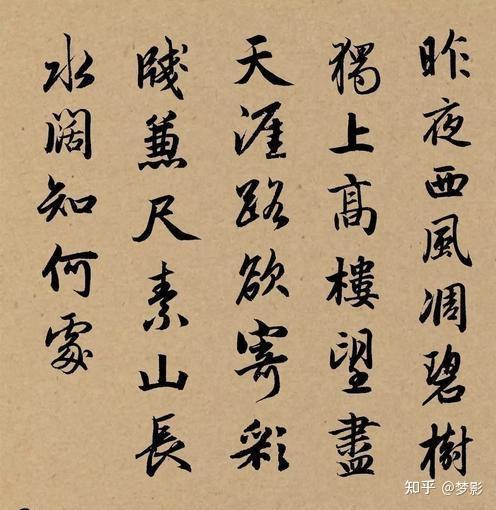 昨夜西風凋碧樹
獨上高樓望盡
天涯路欲寄彩
牋蒹尺素山長
水闊知何處
知乎 @梦影